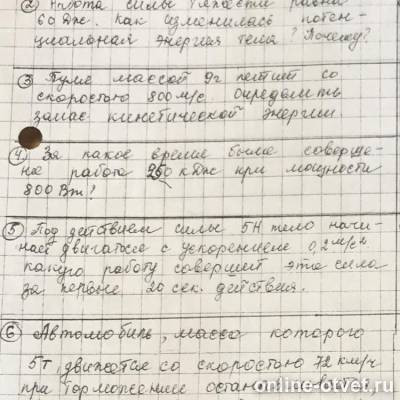 ② Работа силы тяжести равна
60 Дж. Как изменилась потен-
циальная энергия тела? Почему?
③ Пуля массой 9г летит со
скоростью 800 м/с. Определить
запас кинетической энергии.
④ За какое время была соверше-
на работа 250 кДж при мощности
800 Вт?
⑤ Под действием силы 5Н тело начи-
нает двигаться с ускорением 0,2 м/с²
какую работу совершит эта сила
за первые 20 сек. действия.
⑥ Автомобиль, масса которого
5т, движется со скоростью 72 км/ч
при торможение останавливается
online-otvet.ru